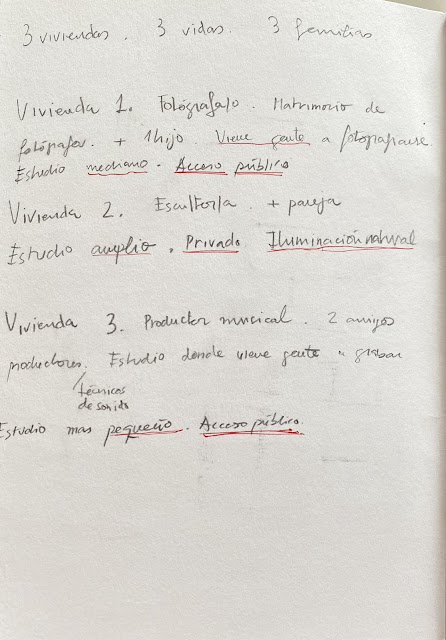 3 viviendas. 3 vidas. 3 familias
Vivienda 1. Fotógrafa/o. Matrimonio de
fotógrafos. + 1 hijo. Viene gente a fotografiarse.
Estudio mediano. Acceso público
Vivienda 2. Escultor/a. + pareja
Estudio amplio. Privado Iluminación natural
Vivienda 3. Productor musical. 2 amigos
productores. Estudio donde viene gente a grabar
técnicos
de sonido
Estudio mas pequeño. Acceso público.